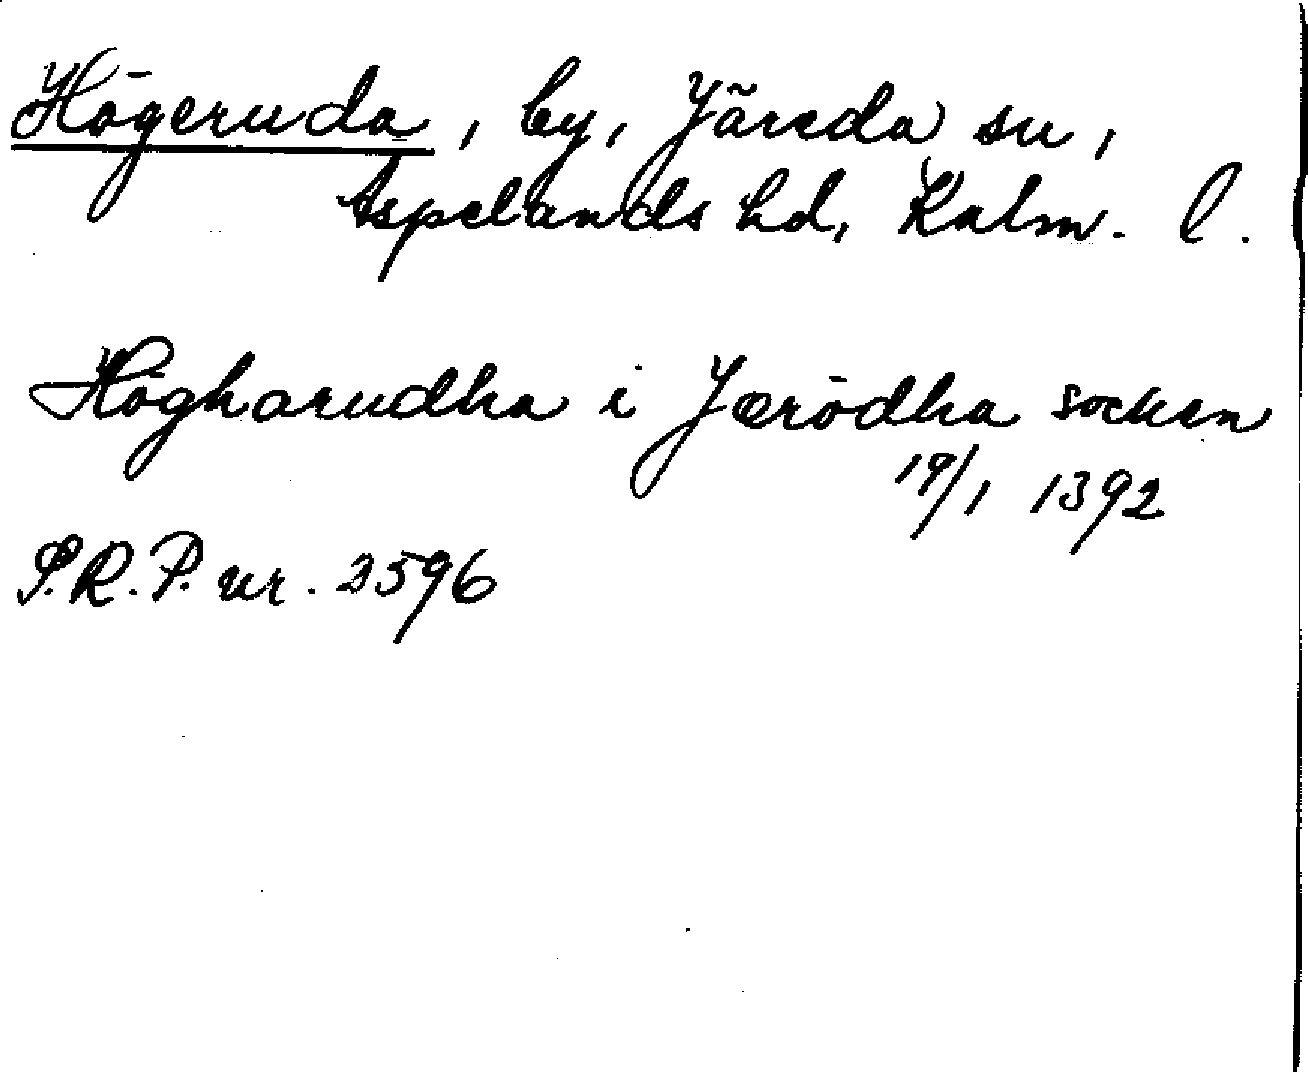 Högeruda, by, Järeda sn,
Aspelands hd, Kalm. l.
Högharudha i Jærödha socken
19/1 1392
S.R.P. nr. 2596